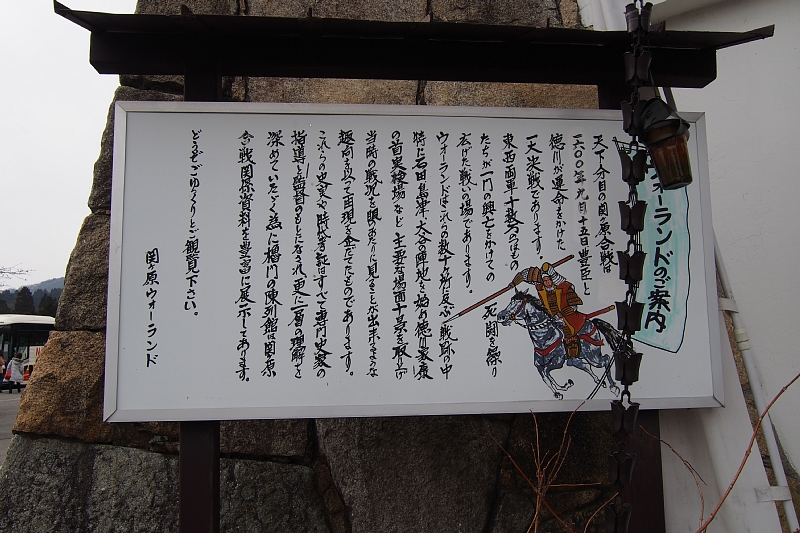 ウォーランドのご案内
天下分目の関ヶ原合戦は
一六〇〇年九月十五日豊臣と
徳川が運命をかけた
一大決戦であります。
東西両軍十数万のつはもの
たちが一門の興亡をかけての 死闘を繰り
広げた戦いの場であります。
ウォーランドはこれらの数十ヶ所に及ぶ戦跡の中
特に石田島津、大谷陣地を始め徳川家康
の首実検場など主要な場面十景を取上げ
当時の戦況を眼のあたりに見ることが出来るような
趣向を以って再現を企だてたものであります。
これらの史実や時代考証はすべて専門史家の
指導と監督のもとになされ更に一層の理解を
深めていたゞく為に櫓門の陳列館は関ヶ原
合戦関係資料を豊富に展示してあります。
どうぞごゆっくりとご観覧下さい。
関ヶ原ウォーランド